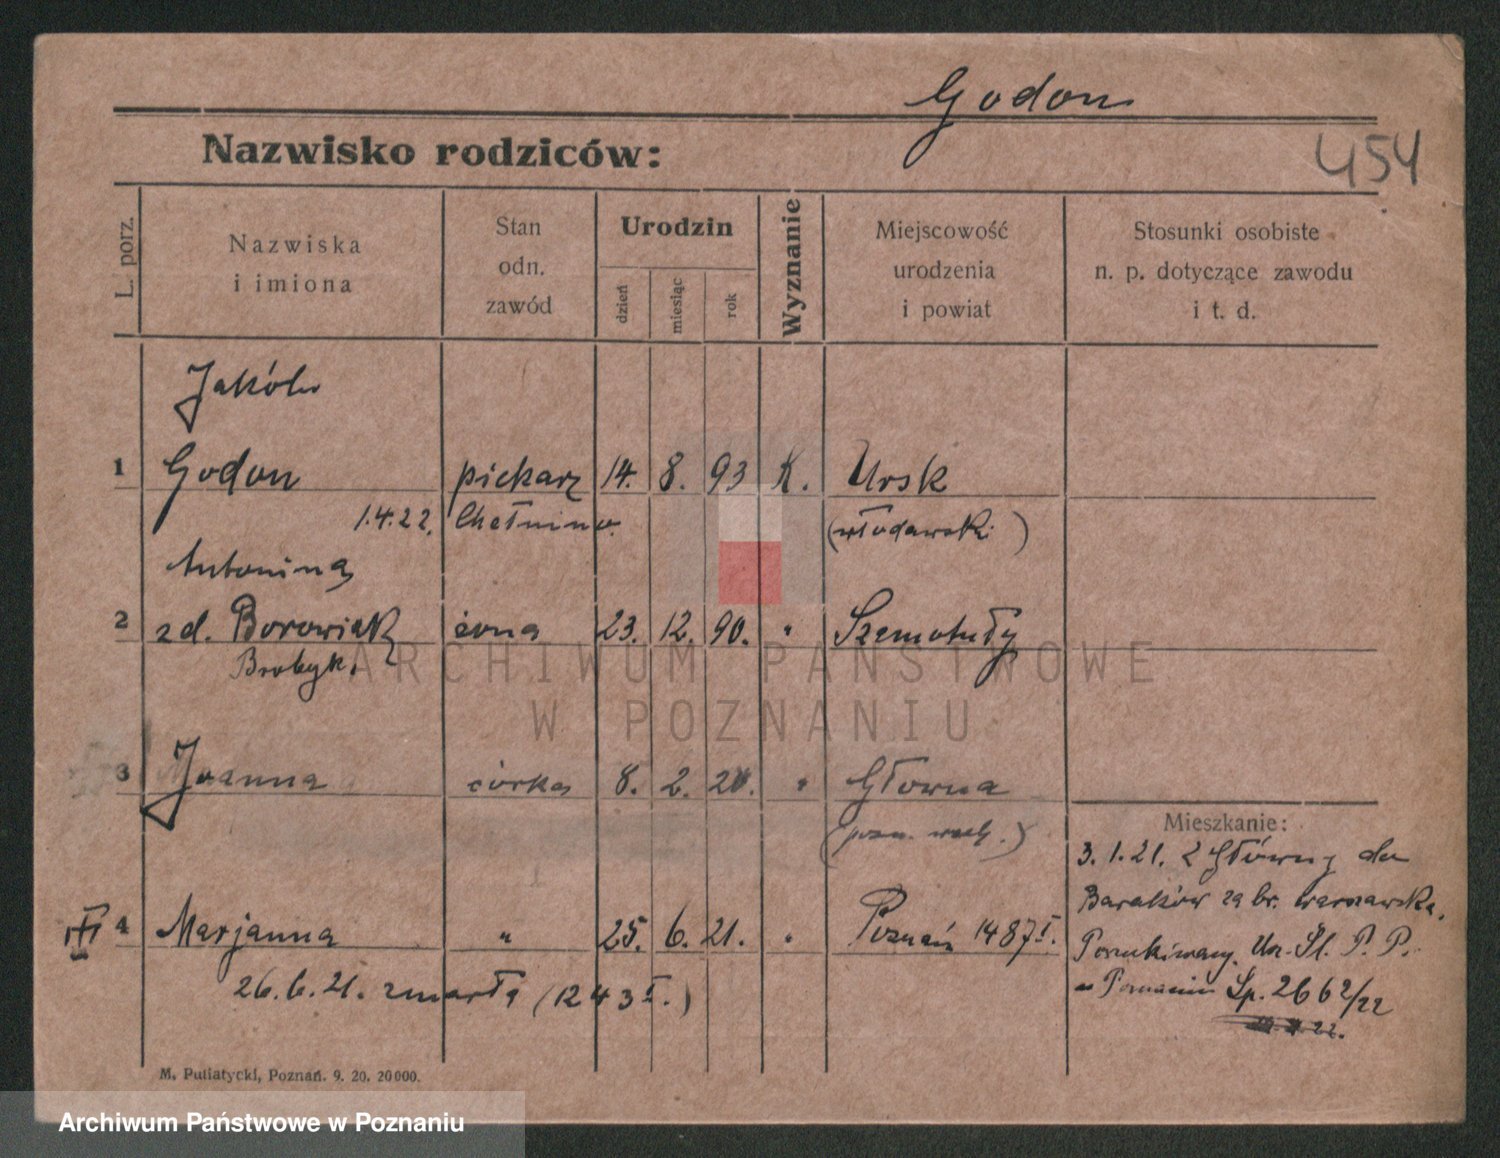 Godon
Nazwisko rodziców:
454
L. porz.
Nazwiska
i imiona
Stan
odn.
zawód
Urodzin
dzień
miesiąc
rok
Wyznanie
Miejscowość
urodzenia
i powiat
Stosunki osobiste
n. p. dotyczące zawodu
i t. d.
Jakób
1 Godon piekarz 14. 8. 93 K. Ursk
1.4.22. Chełmno. (włodawski)
Antonina
2 zd. Borowiak żona 23. 12. 90. " Szamotuły
3 Joanna córka 8. 2. 20. " Główna
(pozn. wsch.)
Mieszkanie:
3. 1. 21. z Główny do
Baraków za br. warszawską.
4 Marjanna " 25. 6. 21. " Poznań 1487 I.
Poszukiwany Urz. Śl. P. P.
26. 6. 21. zmarła (1243 I.)
w Poznaniu Sp. 2662/22
M. Putiatycki, Poznań. 9. 20. 20000.
ARCHIWUM PAŃSTWOWE
W POZNANIU
Archiwum Państwowe w Poznaniu